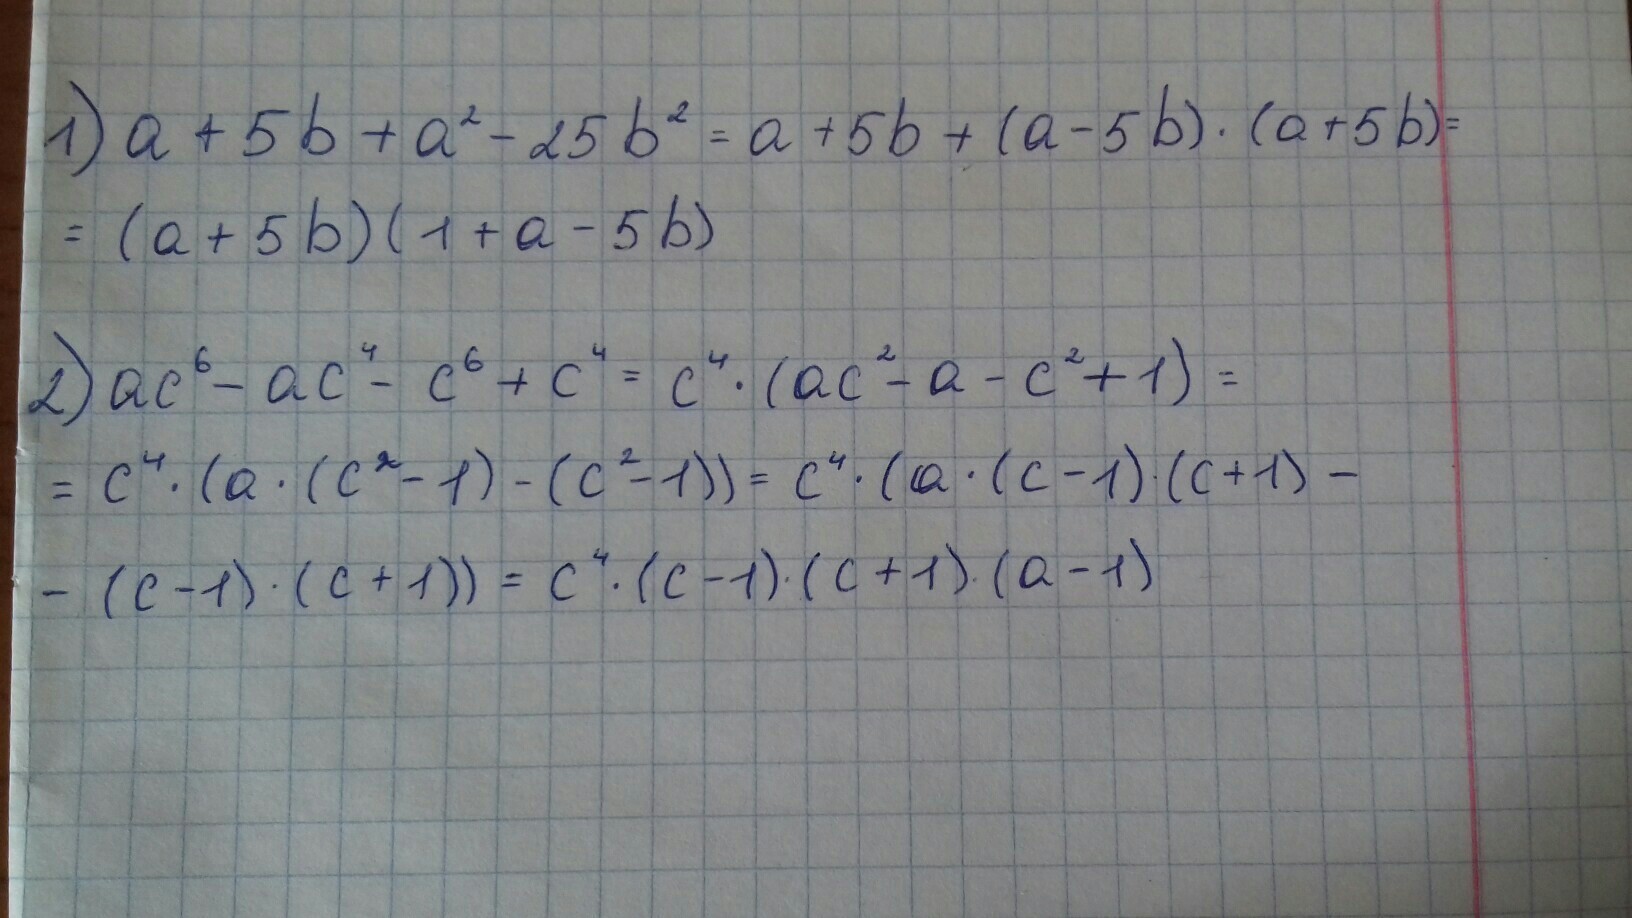 1) a + 5b + a² - 25b² = a + 5b + (a - 5b) · (a + 5b) =
= (a + 5b)(1 + a - 5b)
2) ac⁶ - ac⁴ - c⁶ + c⁴ = c⁴ · (ac² - a - c² + 1) =
= c⁴ · (a · (c² - 1) - (c² - 1)) = c⁴ · (a · (c - 1) · (c + 1) -
- (c - 1) · (c + 1)) = c⁴ · (c - 1) · (c + 1) · (a - 1)